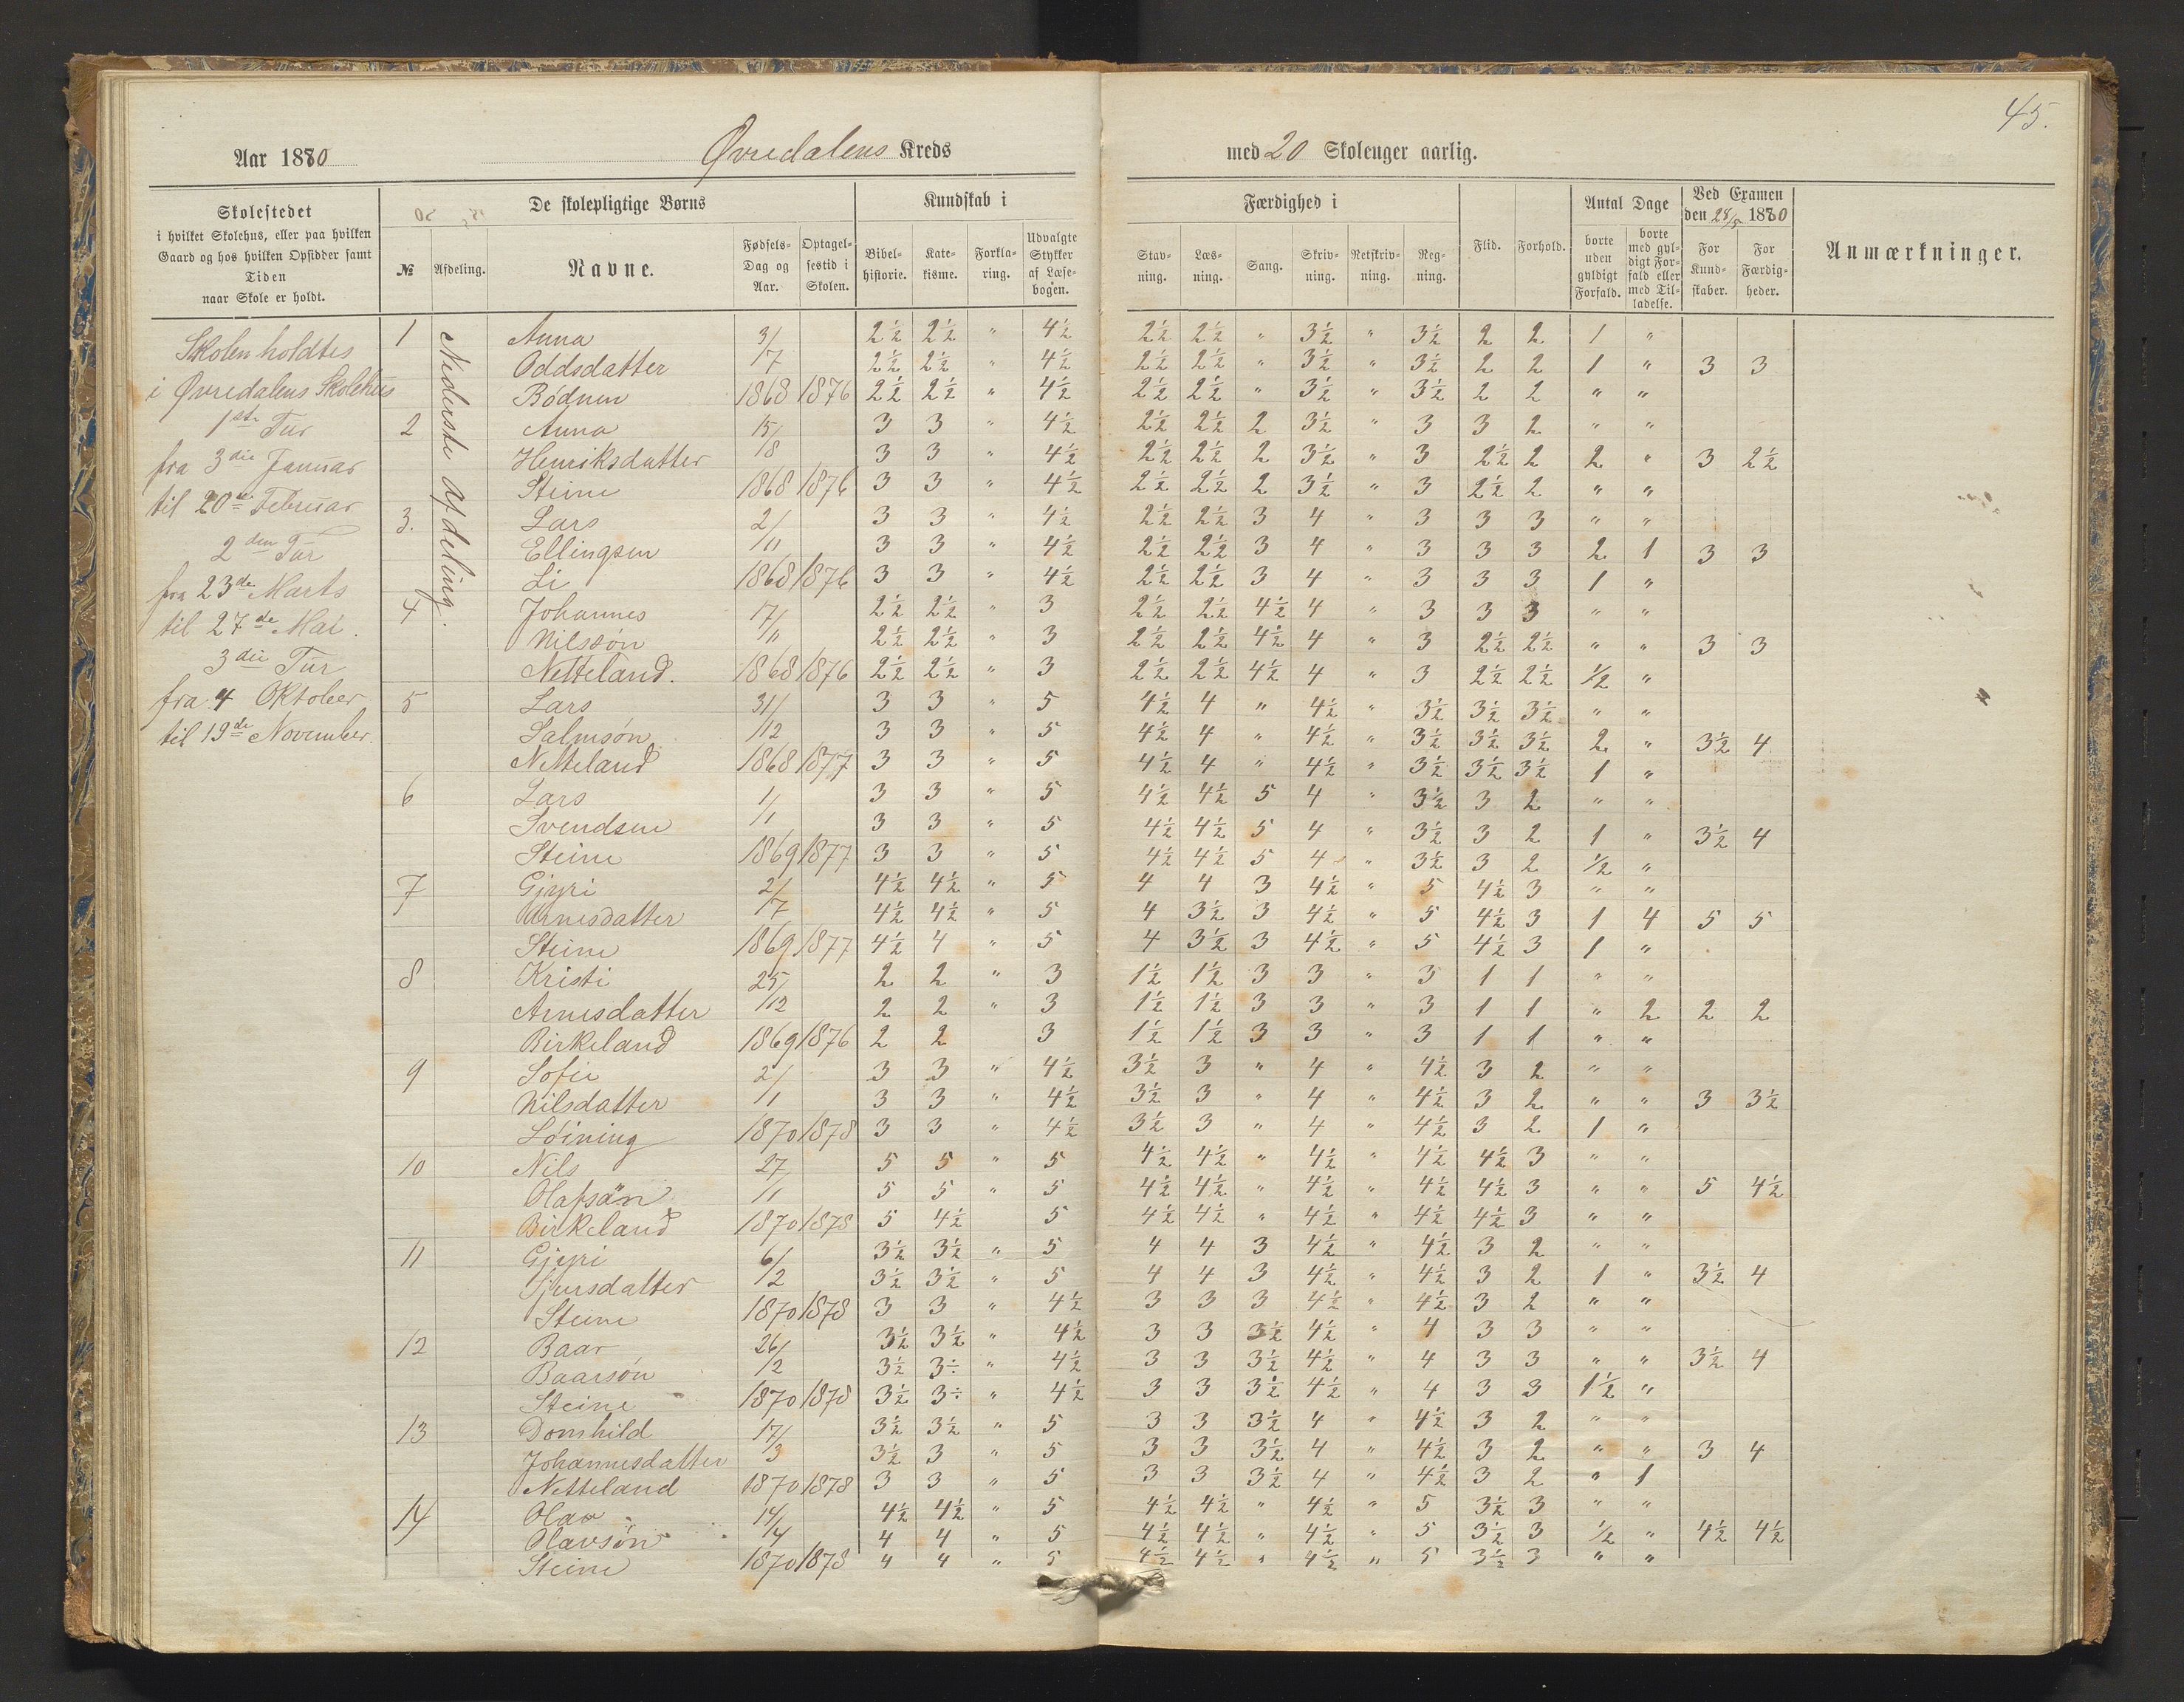 45.
Aar 1880 Øvredalens Kreds med 20 Skoleuger aarlig.
Skolestedet i hvilket Skolehus, eller paa hvilken Gaard og hos hvilken Opsidder samt Tiden naar Skole er holdt.
De skolepligtige Børns
№ Afdeling. Navne. Fødsels-Dag og Aar. Optagelsestid i Skolen.
Kundskab i
Bibelhistorie. Katekisme. Forklaring. Udvalgte Stykker af Læsebogen.
Færdighed i
Stavning. Læsning. Sang. Skrivning. Retskrivning. Regning.
Flid. Forhold.
Antal Dage
borte uden gyldigt Forfald. borte med gyldigt Forfald eller med Tilladelse.
Ved Examen den 28/5 1880
For Kundskaber. For Færdigheder.
Anmærkninger.
Skolen holdtes
i Øvredalens Skolehus
1ste Tur
fra 3die Januar
til 20de Februar
2den Tur
fra 23de Marts
til 27de Mai.
3die Tur
fra 4 Oktober
til 19de November.
Nederste Afdeling.
1 Anna 3/ 2½ 2½ " 4½ 2½ 2½ " 3½ " 3½ 2 2 1 "
Oddsdatter /7 2½ 2½ " 4½ 2½ 2½ " 3½ " 3½ 2 2 1 " 3 3
Bødnen 1868 1876 2½ 2½ " 4½ 2½ 2½ " 3½ " 3½ 2 2 " "
2 Anna 15/ 3 3 " 4½ 2½ 2½ 2 3½ " 3 3 2 " "
Henriksdatter /8 3 3 " 4½ 2½ 2½ 2 3½ " 3 2½ 2 2 " 3 2½
Steine 1868 1876 3 3 " 4½ 2½ 2½ 2 3½ " 3 2½ 2 " "
3. Lars 2/ 3 3 " 4½ 2½ 2½ 3 4 " 3 3 3 " "
Ellingsen /11 3 3 " 4½ 2½ 2½ 3 4 " 3 3 3 2 1 3 3
Li 1868 1876 3 3 " 4½ 2½ 2½ 3 4 " 3 3 3 1 "
4 Johannes 17/ 2½ 2½ " 3 2½ 2½ 4½ 4 " 3 3 3 " "
Nilssøn /11 2½ 2½ " 3 2½ 2½ 4½ 4 " 3 2½ 2½ " " 3 3
Netteland. 1868 1876 2½ 2½ " 3 2½ 2½ 4½ 4 " 3 2½ 2½ ½ "
5 Lars 31/ 3 3 " 5 4½ 4 " 4½ " 3½ 3½ 3½ " "
Salmsøn /12 3 3 " 5 4½ 4 " 4½ " 3½ 3½ 3½ 2 " 3½ 4
Netteland 1868 1877 3 3 " 5 4½ 4 " 4½ " 3½ 3½ 3½ 1 "
6 Lars 1/ 3 3 " 5 4½ 4½ 5 4 " 3½ 3 2 " "
Svendsen /1 3 3 " 5 4½ 4½ 5 4 " 3½ 3 2 1 " 3½ 4
Steine 1869 1877 3 3 " 5 4½ 4½ 5 4 " 3½ 3 2 ½ "
7 Gjyri 2/ 4½ 4½ " 5 4 4 3 4½ " 5 4½ 3 " "
Arnesdatter /7 4½ 4½ " 5 4 3½ 3 4½ " 5 4½ 3 1 4 5 5
Steine 1869 1877 4½ 4 " 5 4 3½ 3 4½ " 5 4½ 3 1 "
8 Kristi 25/ 2 2 " 3 1½ 1½ 3 3 " 3 1 1 " "
Arnesdatter /12 2 2 " 3 1½ 1½ 3 3 " 3 1 1 " 2 2 2
Birkeland 1869 1876 2 2 3 1½ 1½ 3 3 " 3 1 1 " "
9 Sofie 2/ 3 3 " 4½ 3½ 3 " 4 " 4½ 3 2 " "
Nilsdatter /1 3 3 " 4½ 3½ 3 " 4 " 4½ 3 2 " " 3 3½
Løining 1870 1878 3 3 " 4½ 3½ 3 " 4 " 4½ 3 2 1 "
10 Nils 27/ 5 5 " 5 4½ 4½ " 4½ " 4½ 4½ 3 " "
Olafsøn /1 5 5 " 5 4½ 4½ " 4½ " 4½ 4½ 3 " " 5 4½
Birkeland 1870 1878 5 4½ 5 4½ 4½ " 4½ " 4½ 4½ 3 " "
11 Gjyri 6/ 3½ 3½ " 5 4 4 3 4½ " 4½ 3 2 " "
Sjursdatter /2 3½ 3½ " 5 4 4 3 4½ " 4½ 3 2 1 " 3½ 4
Steine 1870 1878 3 3 " 4½ 3 3 3 4½ " 4½ 3 2 " "
12 Baar 26/ 3½ 3½ " 4½ 3 3 3½ 4½ " 4 3 3 " "
Baarsøn /2 3½ 3÷ " 4½ 3 3 3½ 4½ " 4 3 3 " " 3½ 4
Steine 1870 1878 3½ 3÷ " 4½ 3 3 3½ 4½ " 4 3 3 1½ "
13 Domhild 17/ 3½ 3½ " 5 3 3 3½ 4 " 4½ 3 2 " "
Johannesdatter /3 3½ 3 " 5 3 3 3½ 4 " 4½ 3 2 " " 3 4
Netteland 1870 1878 3 3 " 5 3 3 3½ 4 " 4½ 3 2 " 1
14 Olav 14/ 4½ 4½ " 5 4½ 4½ " 4½ " 5 3½ 3 " "
Olavsøn /4 4 4 " 5 4½ 4½ " 4½ " 5 3½ 3 ½ " 4½ 4½
Steine 1870 1878 4 4 " 5 4½ 4½ " 4½ " 5 3½ 3 " "